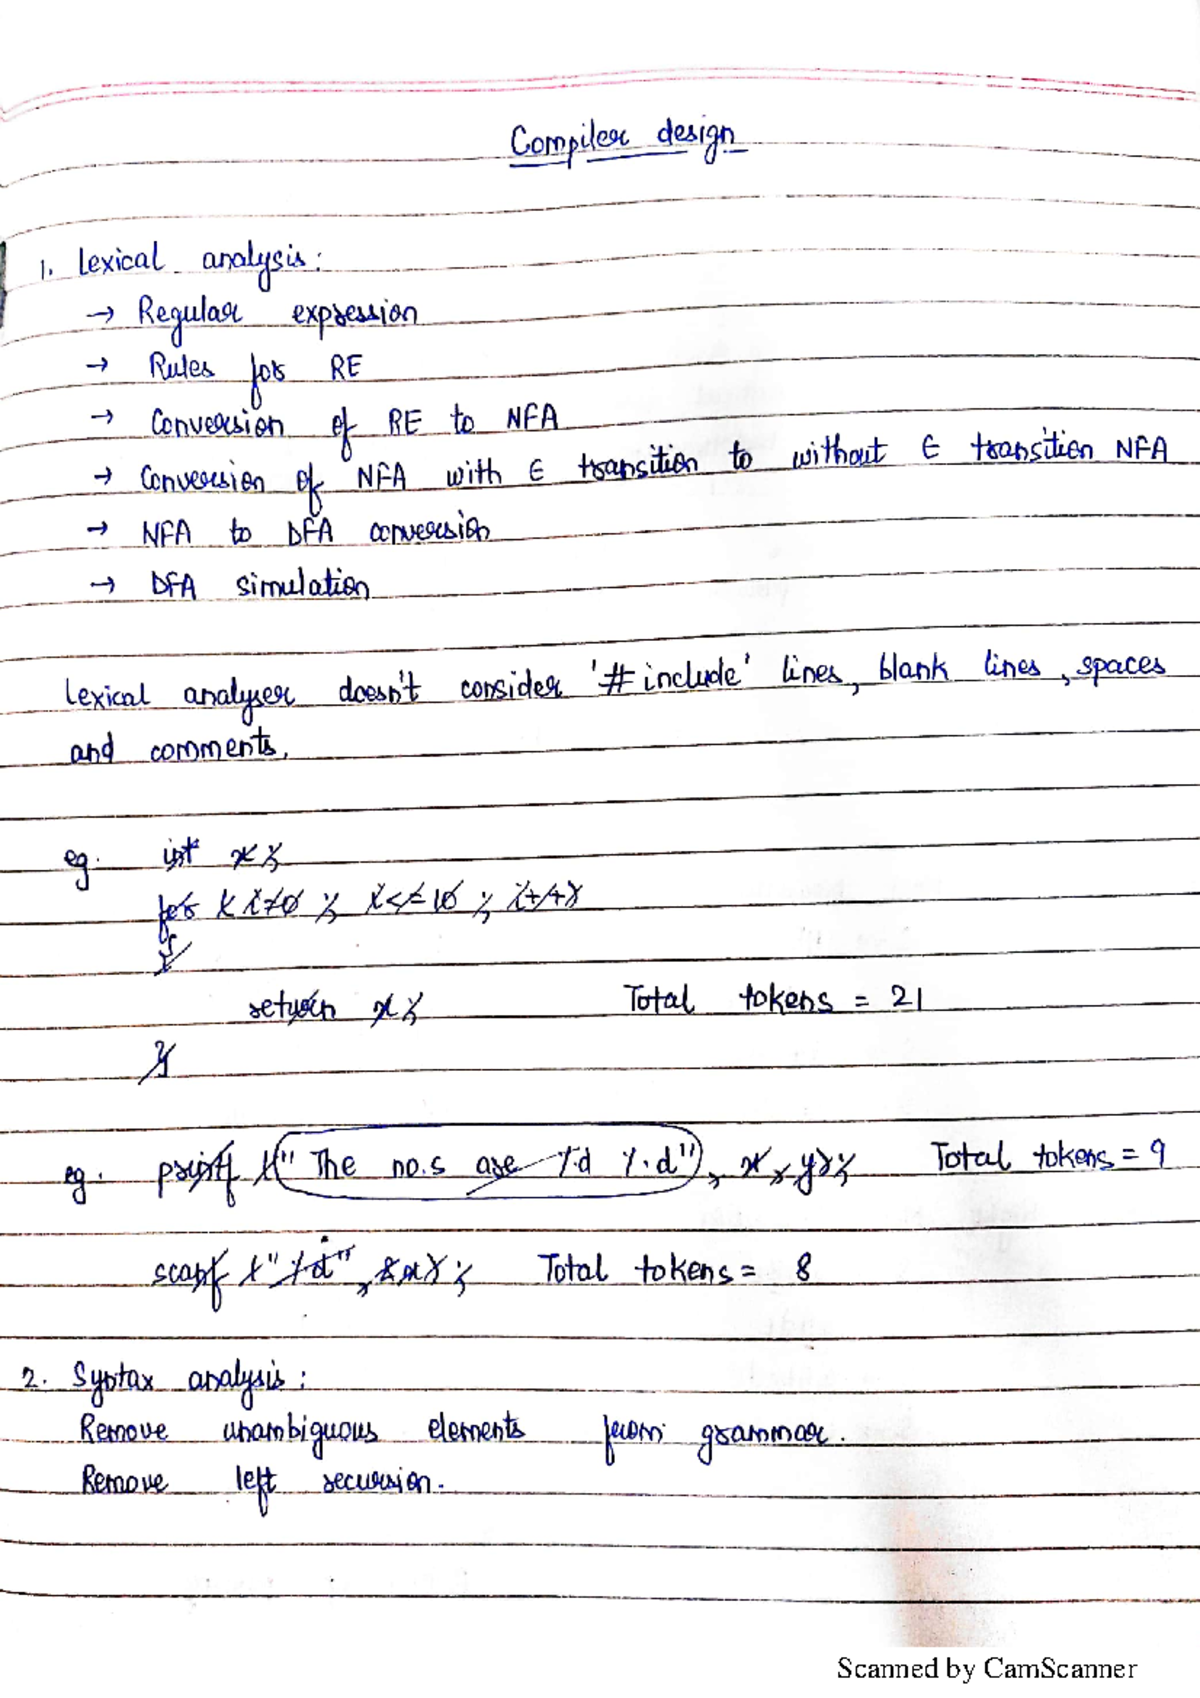 Compiler design
1. Lexical analysis:
→ Regular expression
→ Rules for RE
→ Conversion of RE to NFA
→ Conversion of NFA with ∈ transition to without ∈ transition NFA
→ NFA to DFA conversion
→ DFA simulation
Lexical analyser doesn't consider '#include' lines, blank lines, spaces
and comments.
eg. int x;
for (i=0; i<=10; i++)
{
return x; Total tokens = 21
}
eg. printf ("The no.s are %d %d"), x, y); Total tokens = 9
scanf ("%d", &x); Total tokens = 8
2. Syntax analysis:
Remove unambiguous elements from grammar.
Remove left recursion.
Scanned by CamScanner